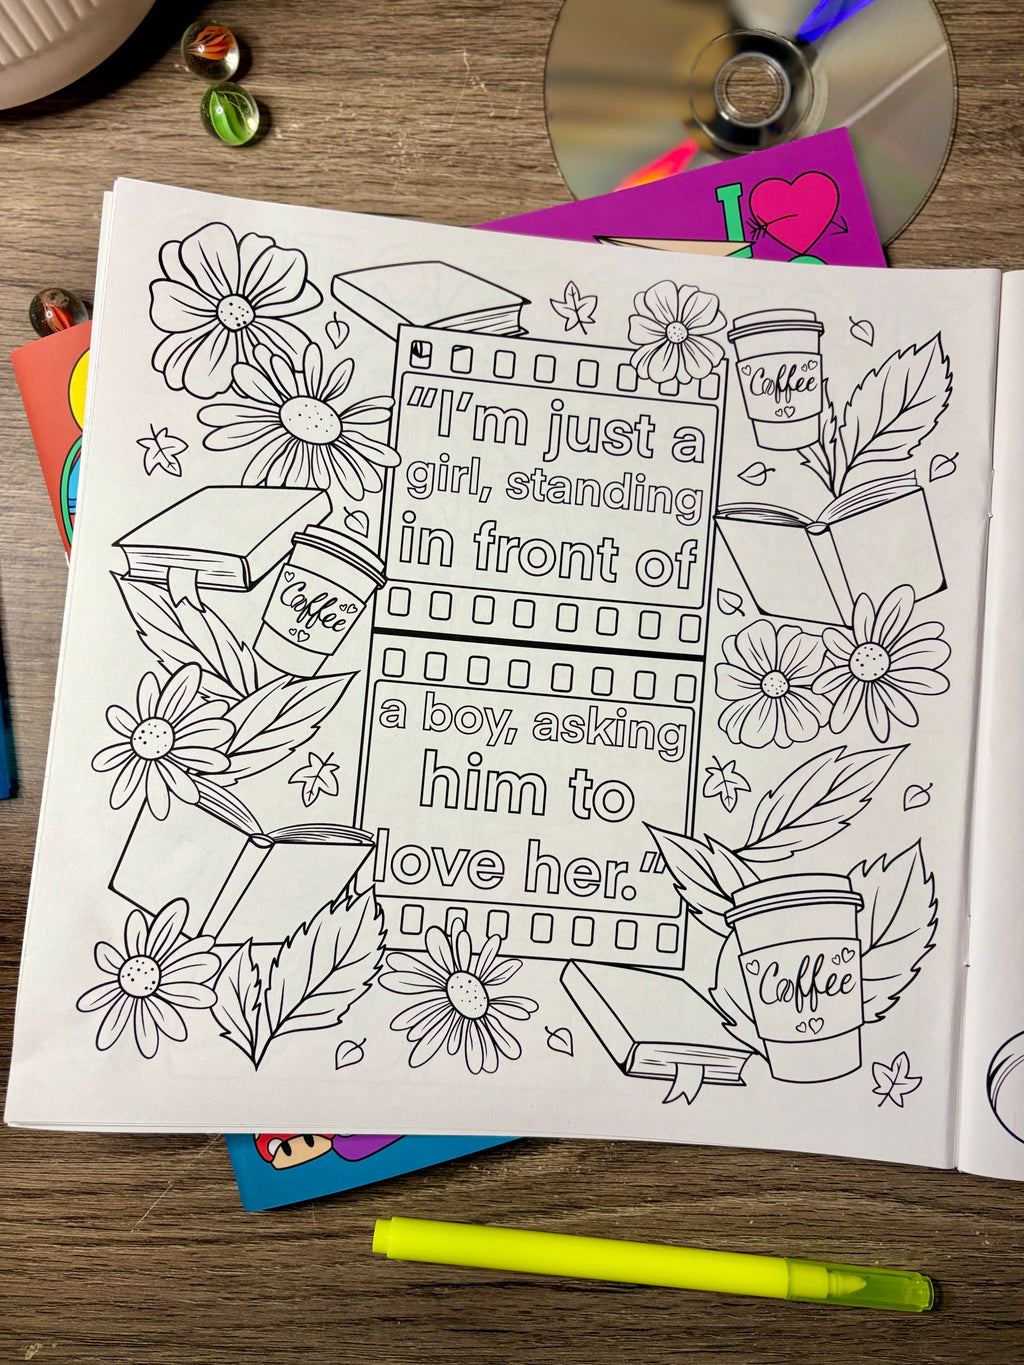 I
"I'm just a
girl, standing
in front of
a boy, asking
him to
love her."
Coffee
Coffee
Coffee